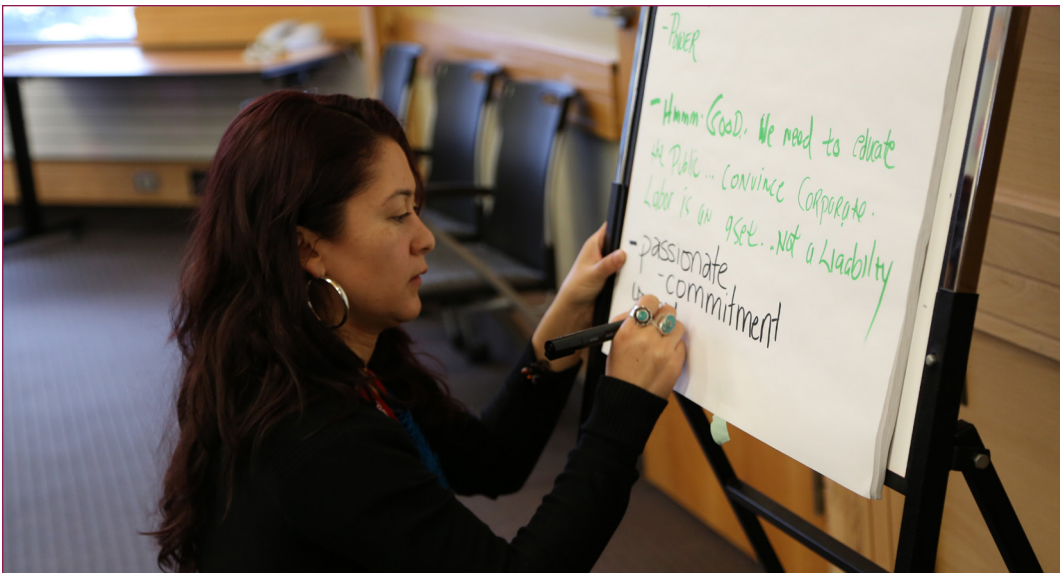 -POWER
-Hmmm. GOOD. We need to educate
the Public... CONVINCE CORPORATE.
Labor is an asset...Not a Liability
-passionate
-commitment